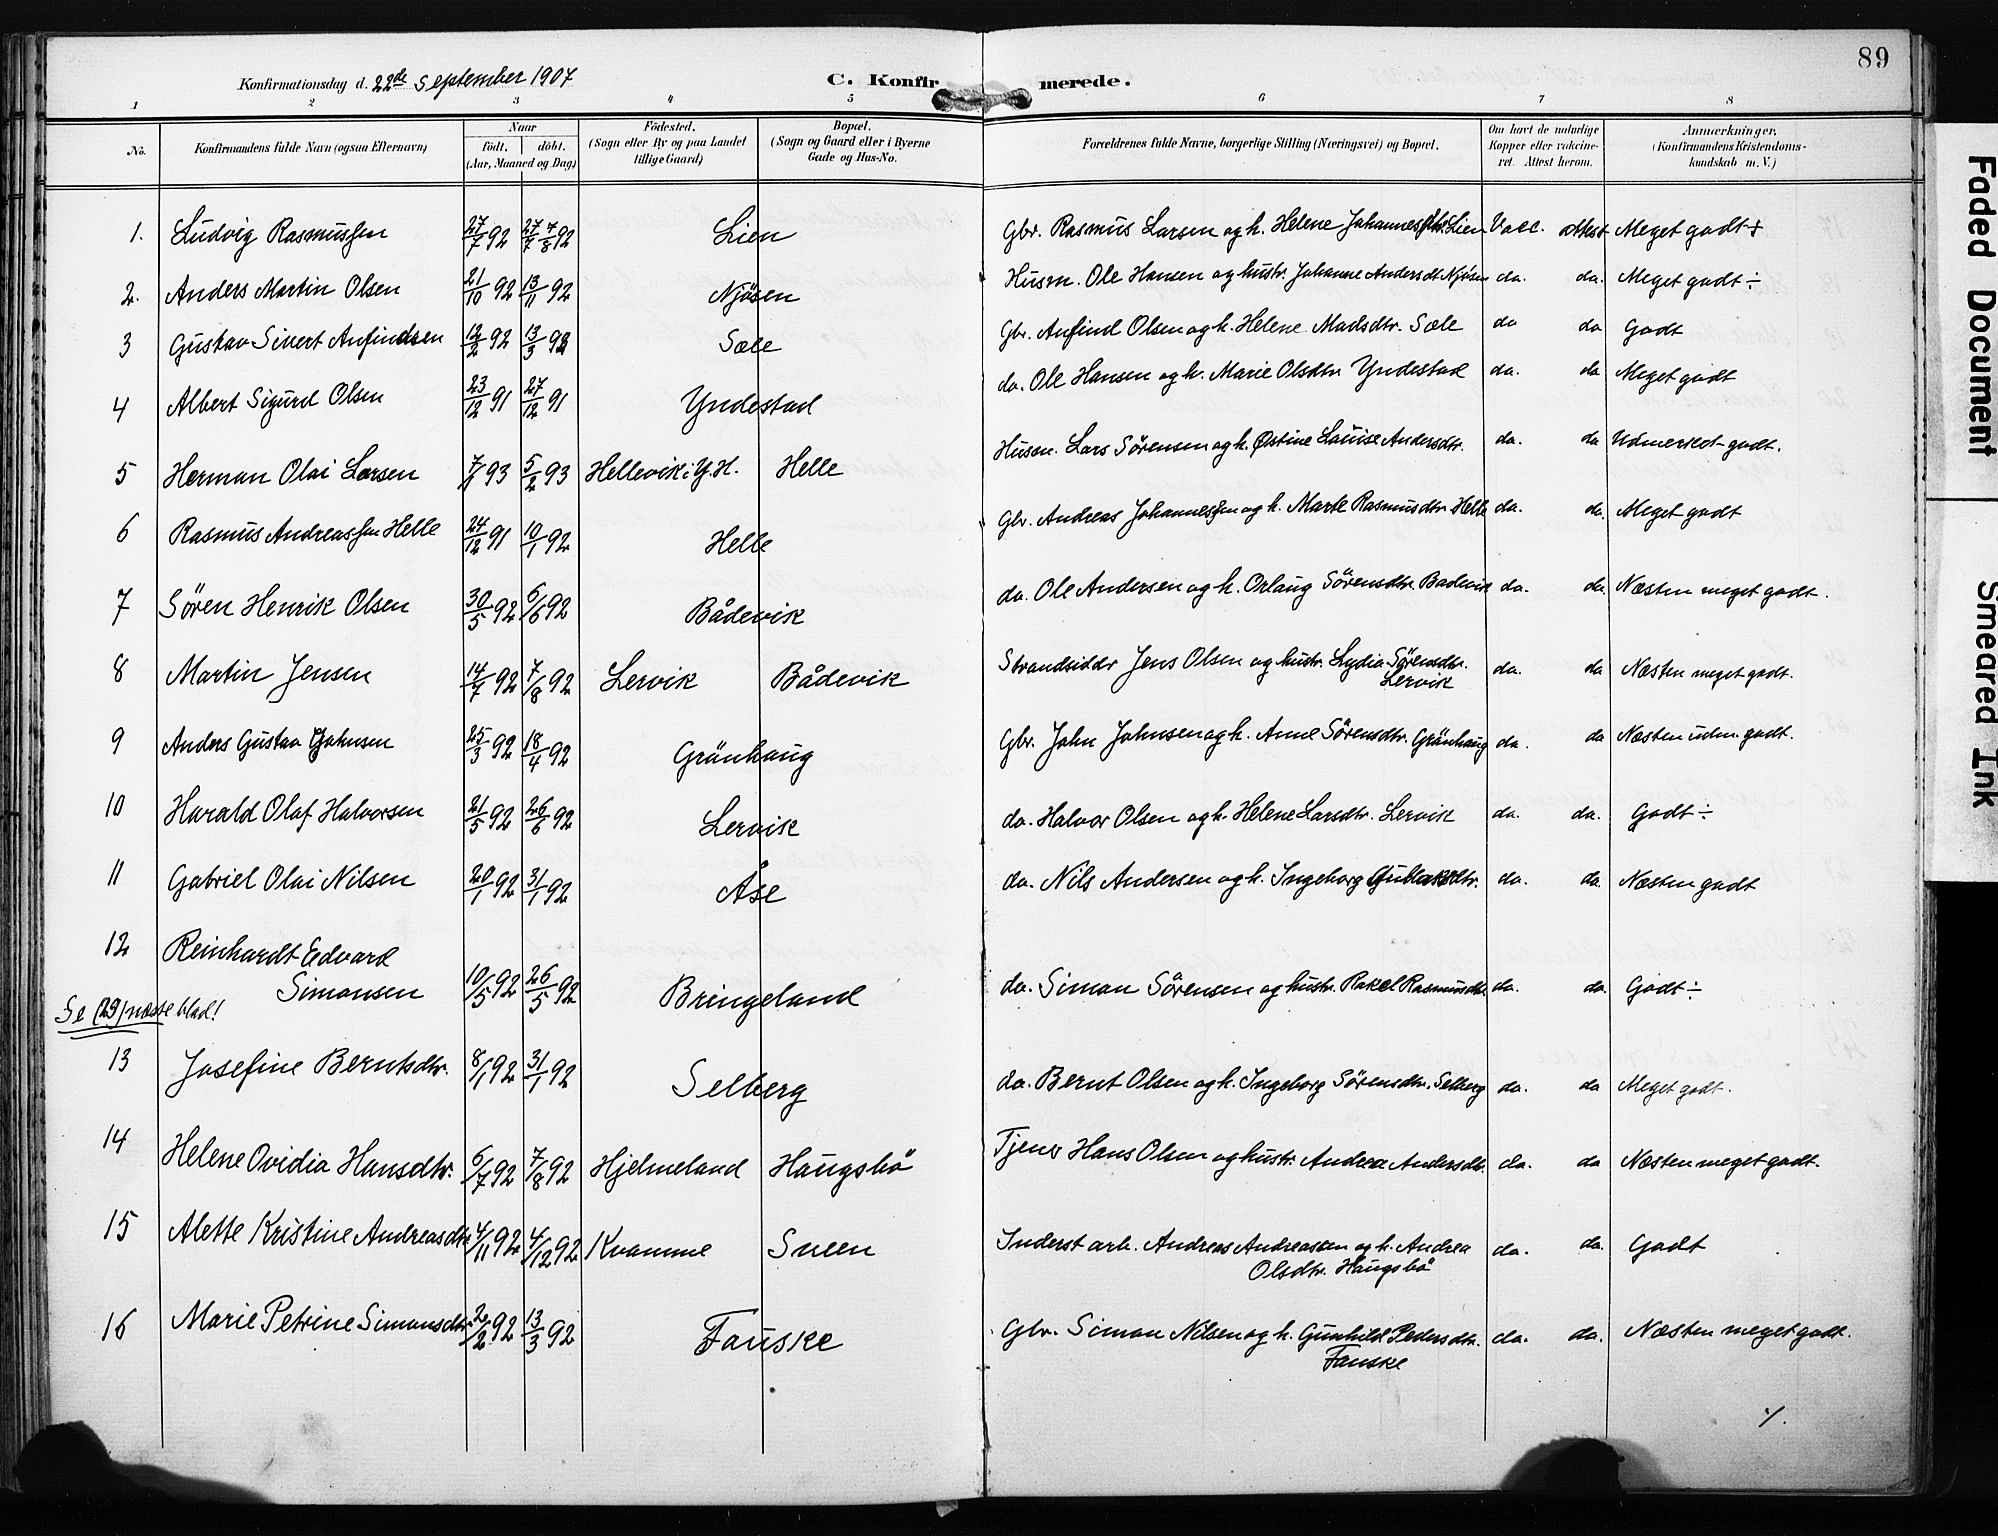 89
Konfirmationsdag d. 22de September 1907
C. Konfirmerede.
1 2 3 4 5 6 7 8
No. Konfirmandens fulde Navn (ogsaa Efternavn) Naar født. døbt. (Aar, Maaned og Dag) Fødested. (Sogn eller By og paa Landet tillige Gaard) Bopæl. (Sogn og Gaard eller i Byerne Gade og Hus-No. Forældrenes fulde Navne, borgerlige Stilling (Næringsvei) og Bopæl. Om havt de naturlige Kopper eller vakcineret. Attest herom. Anmærkninger. (Konfirmandens Kristendomskundskab m. V.)
1. Ludvig Rasmussen 27/7 92 92 Lien Gbr. Rasmus Larsen og h. Helene Johannesdtr. Lien Vacc. attest Meget godt +
2. Anders Martin Olsen 21/10 92 13/11 92 Njøsen Husm. Ole Hansen og hustr. Johanne Andersdt. Njøsen da. da. Meget godt ÷
3 Gustav Sivert Anfindsen 12/2 92 13/3 92 Sæle Gbr. Anfind Olsen og h. Helene Madsdtr. Sæle da da Godt
4 Albert Sigurd Olsen 23/12 91 27/12 91 Yndestad da. Ole Hansen og h. Marie Olsdtr. Yndestad da. da Meget godt
5 Herman Olai Larsen 93 5/2 93 Hellevik i Y. H. Helle Husm. Lars Sørensen og h. Østine Louise Andersdtr. da. da Udmerket godt.
6 Rasmus Andreassen Helle 24/12 91 10/1 92 Helle Gbr. Andreas Johannessen og h. Marte Rasmusdtr Helle da. da. Meget godt
7 Sören Henrik Olsen 30/5 92 6/6 92 Bådevik da. Ole Andersen og h. Orlaug Sörensdtr. Badevik da. da. Næsten meget godt.
8 Martin Jensen 14/7 92 7/8 92 Lervik Bådevik Strandsiddr Jens Olsen og hustr. Lydia Sörensdtr. Lervik da. da Næsten meget godt.
9 Anders Gustav Johnsen 25/3 92 18/4 92 Grönhaug Gbr. John Johnsen og h. Anne Sörensdtr. Grönhaug da. da Næsten udm. godt.
10 Harald Olaf Halvorsen 21/5 92 26/6 92 Lervik da. Halvor Olsen og h. Helene Larsdtr. Lervik da. da. Godt ÷
11 Gabriel Olai Nilsen 20/1 92 31/1 92 Åse da. Nils Andersen og h. Ingeborg da. da. Næsten godt
12 Reinhardt Edvard Simonsen 10/5 92 26/5 92 Bringeland da. Simon Sörensen og hustr. Rakel Rasmusdtr. da. da. Godt ÷
Se (29) næste blad!
13 Josefine Berntsdtr. 8/1 92 31/1 92 Selberg da. Bernt Olsen og h. Ingeborg Sörensdtr. Selberg da. da Meget godt.
14 Helene Ovidia Hansdtr. 6/7 92 7/8 92 Hjelmeland Haugsbö Tjener Hans Olsen og hustr. Andrea Andersdtr. da. da Næsten meget godt.
15 Alette Kristine Andreasdtr. 4/11 92 4/12 92 Kvamme Sveen Inderst arb. Andreas Andreassen og h. Andrea Olsdtr. Haugsbö da. da. Godt
16 Marie Petrine Simonsdtr. 2/2 92 13/3 92 Fauske Gbr. Simon Nilsen og h. Gunhild Pedersdtr. Fauske da. da. Næsten meget godt.
./.
Faded Document
Smeared Ink